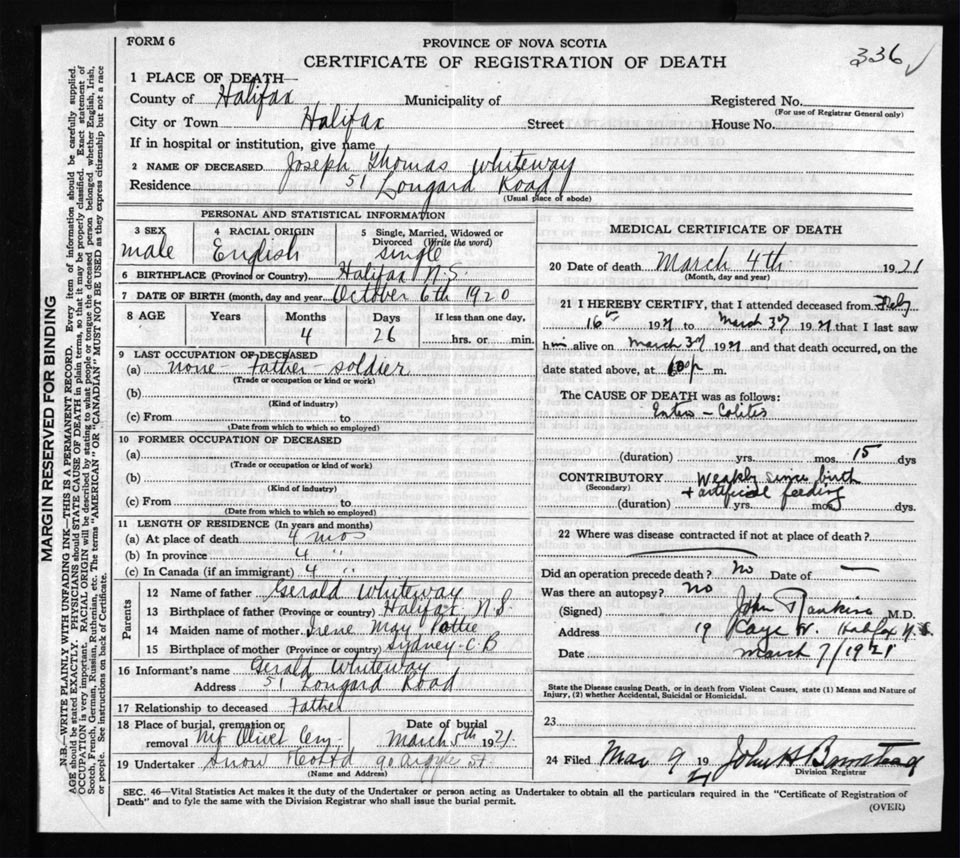 FORM 6
PROVINCE OF NOVA SCOTIA
336 ✓
CERTIFICATE OF REGISTRATION OF DEATH
1 PLACE OF DEATH—
County of Halifax Municipality of Registered No.
(For use of Registrar General only)
City or Town Halifax Street House No.
If in hospital or institution, give name
2 NAME OF DECEASED Joseph Thomas Whiteway
Residence 51 Longard Road
(Usual place of abode)
PERSONAL AND STATISTICAL INFORMATION
3 SEX 4 RACIAL ORIGIN 5 Single, Married, Widowed or Divorced (Write the word)
male English single
6 BIRTHPLACE (Province or Country) Halifax N.S.
7 DATE OF BIRTH (month, day and year October 6th 1920
8 AGE Years Months Days If less than one day,
4 26 hrs. or min.
9 LAST OCCUPATION OF DECEASED
(a) none - father - soldier
(Trade or occupation or kind or work)
(b)
(Kind of industry)
(c) From to
(Date from which to which so employed)
10 FORMER OCCUPATION OF DECEASED
(a)
(Trade or occupation or kind of work)
(b)
(Kind of industry)
(c) From to
(Date from which to which so employed)
11 LENGTH OF RESIDENCE (In years and months)
(a) At place of death 4 mos
(b) In province 4 "
(c) In Canada (if an immigrant) 4 "
Parents
12 Name of father Gerald Whiteway
13 Birthplace of father (Province or country) Halifax N.S.
14 Maiden name of mother Irene May
15 Birthplace of mother (Province or country) Sydney C.B
16 Informant's name Gerald Whiteway
Address 51 Longard Road
17 Relationship to deceased Father
18 Place of burial, cremation or removal Mt Olivet Cem Date of burial March 5th 1921.
19 Undertaker Snow 90 Argyle St.
(Name and Address)
MEDICAL CERTIFICATE OF DEATH
20 Date of death March 4th 1921
(Month, day and year)
21 I HEREBY CERTIFY, that I attended deceased from Feby
16th 1921 to March 3rd 1921 that I last saw
him alive on March 3rd 1921 and that death occurred, on the
date stated above, at m.
The CAUSE OF DEATH was as follows:
Entero - Colitis
(duration) yrs. mos. 15 dys
CONTRIBUTORY Weakly since birth
(Secondary) + artificial feeding
(duration) yrs. mos. dys.
22 Where was disease contracted if not at place of death?
Did an operation precede death? No Date of —
Was there an autopsy? No
(Signed) John Rankine M.D.
Address 19 Kaye St. Halifax N.S.
Date March 7/1921
State the Disease causing Death, or in death from Violent Causes, state (1) Means and Nature of Injury, (2) whether Accidental, Suicidal or Homicidal.
23
24 Filed Mar 9 1921 John H Barnstead
Division Registrar
SEC. 46—Vital Statistics Act makes it the duty of the Undertaker or person acting as Undertaker to obtain all the particulars required in the "Certificate of Registration of
Death" and to fyle the same with the Division Registrar who shall issue the burial permit.
(OVER)
MARGIN RESERVED FOR BINDING
N.B.—WRITE PLAINLY WITH UNFADING INK—THIS IS A PERMANENT RECORD. Every item of information should be carefully supplied.
AGE should be stated EXACTLY. PHYSICIANS should STATE CAUSE OF DEATH in plain terms, so that it may be properly classified. Exact statement of
OCCUPATION is very important. RACIAL ORIGIN will be described by stating to what people or tongue the deceased person belonged whether English, Irish,
Scotch, French, German, Russian, Ruthenian, etc. The terms "AMERICAN" OR "CANADIAN" MUST NOT BE USED as they express citizenship but not a race
or people. See instructions on back of Certificate.